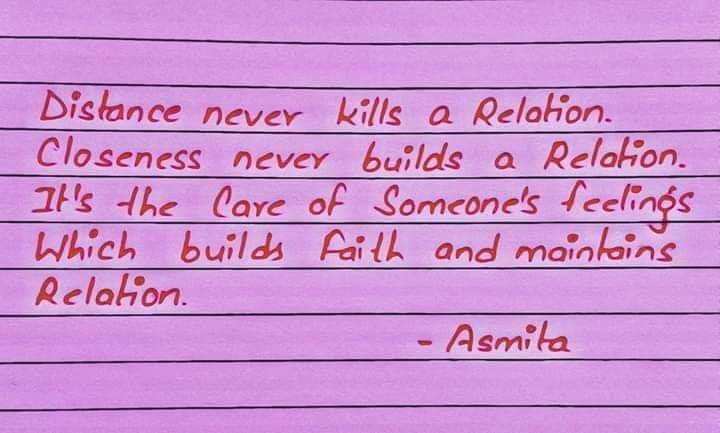 Distance never kills a Relation.
Closeness never builds a Relation.
It's the Care of Someone's feelings
Which builds faith and maintains
Relation.
- Asmita